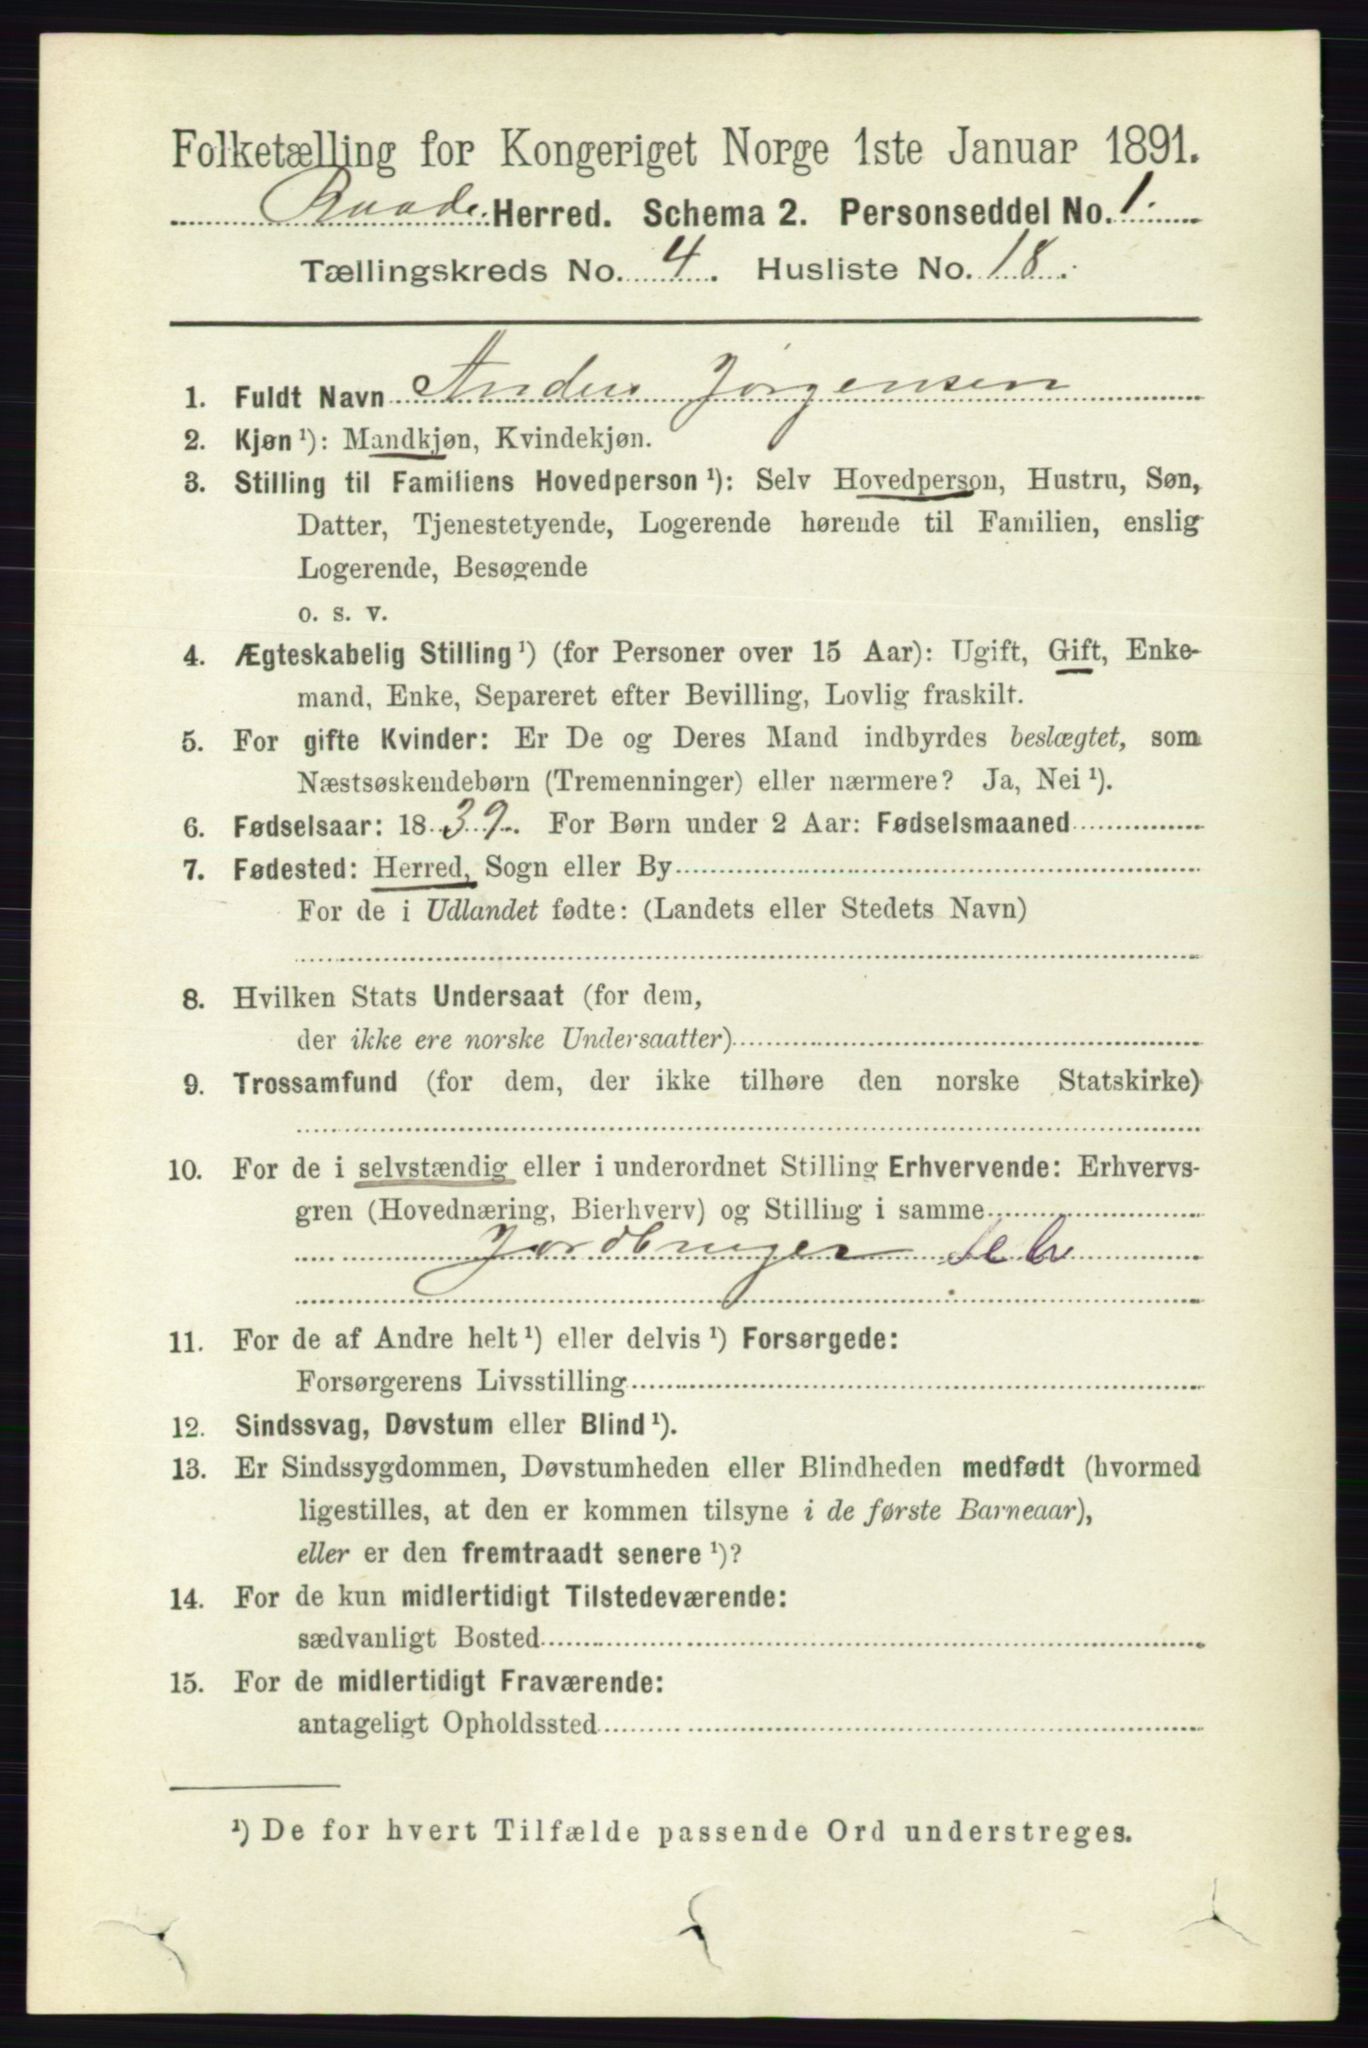 Folketælling for Kongeriget Norge 1ste Januar 1891.
Raade Herred. Schema 2. Personseddel No. 1.
Tællingskreds No. 4. Husliste No. 18.
1. Fuldt Navn Anders Jörgensen
2. Kjøn ¹): Mandkjøn, Kvindekjøn.
3. Stilling til Familiens Hovedperson ¹): Selv Hovedperson, Hustru, Søn,
Datter, Tjenestetyende, Logerende hørende til Familien, enslig
Logerende, Besøgende
o. s. v.
4. Ægteskabelig Stilling ¹) (for Personer over 15 Aar): Ugift, Gift, Enke-
mand, Enke, Separeret efter Bevilling, Lovlig fraskilt.
5. For gifte Kvinder: Er De og Deres Mand indbyrdes beslægtet, som
Næstsøskendebørn (Tremenninger) eller nærmere? Ja, Nei ¹).
6. Fødselsaar: 1839. For Børn under 2 Aar: Fødselsmaaned
7. Fødested: Herred, Sogn eller By
For de i Udlandet fødte: (Landets eller Stedets Navn)
8. Hvilken Stats Undersaat (for dem,
der ikke ere norske Undersaatter)
9. Trossamfund (for dem, der ikke tilhøre den norske Statskirke)
10. For de i selvstændig eller i underordnet Stilling Erhvervende: Erhvervs-
gren (Hovednæring, Bierhverv) og Stilling i samme
Jordbruger Selv
11. For de af Andre helt ¹) eller delvis ¹) Forsørgede:
Forsørgerens Livsstilling
12. Sindssvag, Døvstum eller Blind ¹).
13. Er Sindssygdommen, Døvstumheden eller Blindheden medfødt (hvormed
ligestilles, at den er kommen tilsyne i de første Barneaar),
eller er den fremtraadt senere ¹)?
14. For de kun midlertidigt Tilstedeværende:
sædvanligt Bosted
15. For de midlertidigt Fraværende:
antageligt Opholdssted
¹) De for hvert Tilfælde passende Ord understreges.